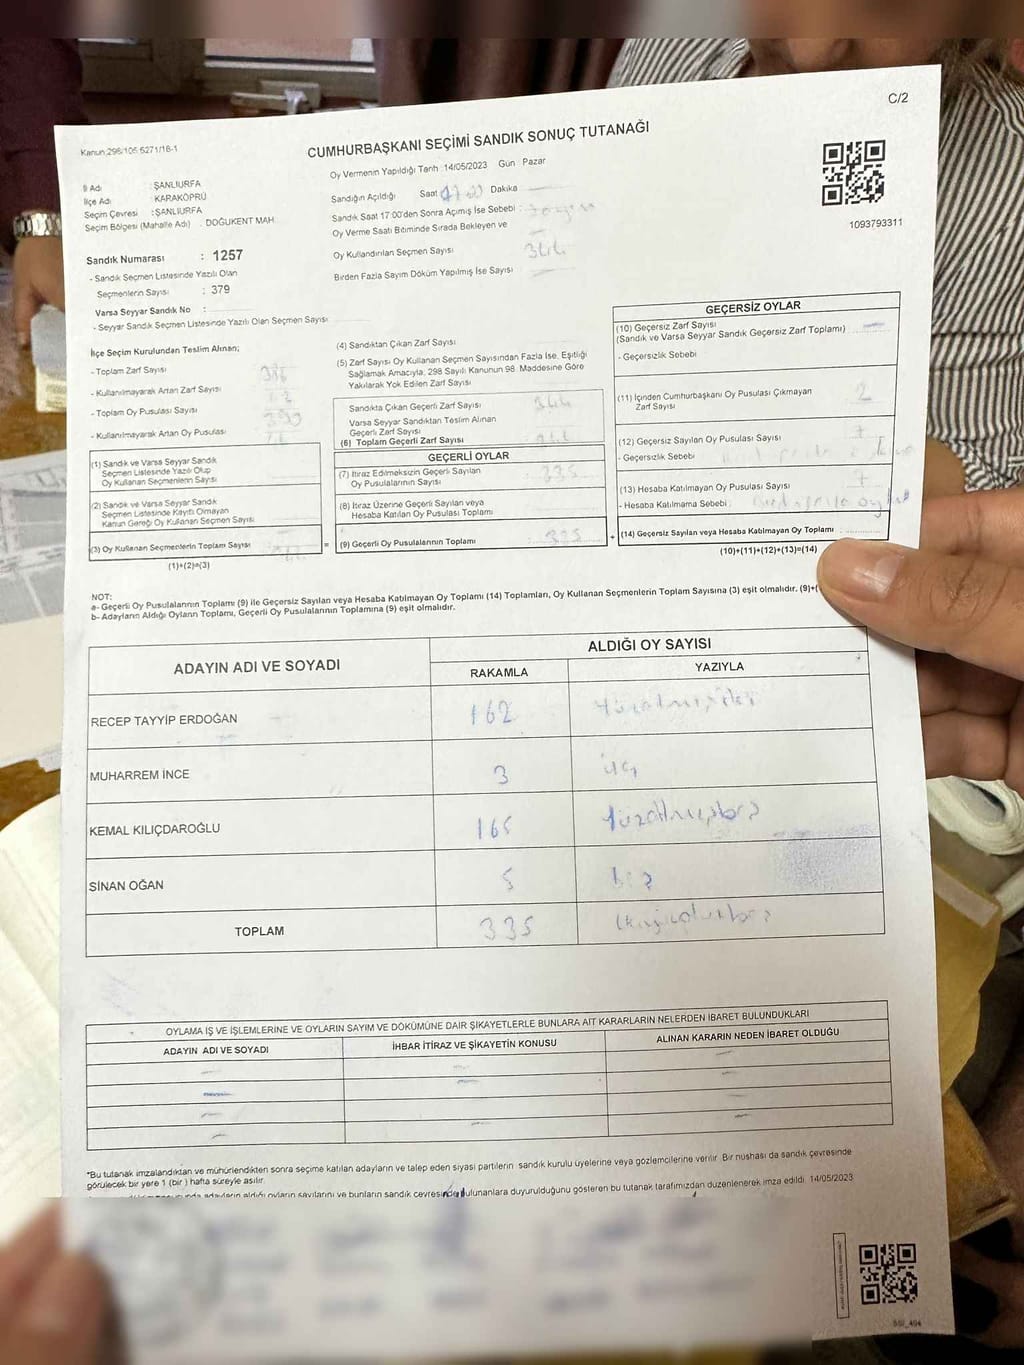 C/2
Kanun 298/106 6271/18-1
CUMHURBAŞKANI SEÇİMİ SANDIK SONUÇ TUTANAĞI
Oy Vermenin Yapıldığı Tarih 14/05/2023 Gün Pazar
İl Adı : ŞANLIURFA
İlçe Adı KARAKÖPRÜ
Seçim Çevresi : ŞANLIURFA
Seçim Bölgesi (Mahalle Adı) : DOĞUKENT MAH.
Sandığın Açıldığı Saat Dakika
Sandık Saat 17:00'den Sonra Açılmış İse Sebebi :
Oy Verme Saati Bitiminde Sırada Bekleyen ve
Oy Kullandırılan Seçmen Sayısı
Birden Fazla Sayım Döküm Yapılmış İse Sayısı
1093793311
Sandık Numarası : 1257
- Sandık Seçmen Listesinde Yazılı Olan
Seçmenlerin Sayısı : 379
Varsa Seyyar Sandık No :
- Seyyar Sandık Seçmen Listesinde Yazılı Olan Seçmen Sayısı
İlçe Seçim Kurulundan Teslim Alınan;
- Toplam Zarf Sayısı
- Kullanılmayarak Artan Zarf Sayısı
- Toplam Oy Pusulası Sayısı
- Kullanılmayarak Artan Oy Pusulası
(1) Sandık ve Varsa Seyyar Sandık
Seçmen Listesinde Yazılı Olup
Oy Kullanan Seçmenlerin Sayısı
(2) Sandık ve Varsa Seyyar Sandık
Seçmen Listesinde Kayıtlı Olmayan
Kanun Gereği Oy Kullanan Seçmen Sayısı
(3) Oy Kullanan Seçmenlerin Toplam Sayısı
(1)+(2)=(3)
(4) Sandıktan Çıkan Zarf Sayısı
(5) Zarf Sayısı Oy Kullanan Seçmen Sayısından Fazla İse, Eşitliği
Sağlamak Amacıyla, 298 Sayılı Kanunun 98. Maddesine Göre
Yakılarak Yok Edilen Zarf Sayısı
Sandıkta Çıkan Geçerli Zarf Sayısı
Varsa Seyyar Sandıktan Teslim Alınan
Geçerli Zarf Sayısı
(6) Toplam Geçerli Zarf Sayısı
GEÇERLİ OYLAR
(7) İtiraz Edilmeksizin Geçerli Sayılan
Oy Pusulalarının Sayısı 335
(8) İtiraz Üzerine Geçerli Sayılan veya
Hesaba Katılan Oy Pusulası Toplamı
= (9) Geçerli Oy Pusulalarının Toplamı 335 +
GEÇERSİZ OYLAR
(10) Geçersiz Zarf Sayısı
(Sandık ve Varsa Seyyar Sandık Geçersiz Zarf Toplamı)
- Geçersizlik Sebebi
(11) İçinden Cumhurbaşkanı Oy Pusulası Çıkmayan
Zarf Sayısı 2
(12) Geçersiz Sayılan Oy Pusulası Sayısı
- Geçersizlik Sebebi
(13) Hesaba Katılmayan Oy Pusulası Sayısı 7
- Hesaba Katılmama Sebebi :
(14) Geçersiz Sayılan veya Hesaba Katılmayan Oy Toplamı
(10)+(11)+(12)+(13)=(14)
NOT:
a- Geçerli Oy Pusulalarının Toplamı (9) ile Geçersiz Sayılan veya Hesaba Katılmayan Oy Toplamı (14) Toplamları, Oy Kullanan Seçmenlerin Toplam Sayısına (3) eşit olmalıdır. (9)+(
b- Adayların Aldığı Oyların Toplamı, Geçerli Oy Pusulalarının Toplamına (9) eşit olmalıdır.
ADAYIN ADI VE SOYADI
ALDIĞI OY SAYISI
RAKAMLA YAZIYLA
RECEP TAYYİP ERDOĞAN 162 Yüzatmışiki
MUHARREM İNCE 3 üç
KEMAL KILIÇDAROĞLU 165 Yüzatmışbeş
SİNAN OĞAN 5 beş
TOPLAM 335
OYLAMA İŞ VE İŞLEMLERİNE VE OYLARIN SAYIM VE DÖKÜMÜNE DAİR ŞİKAYETLERLE BUNLARA AİT KARARLARIN NELERDEN İBARET BULUNDUKLARI
ADAYIN ADI VE SOYADI İHBAR İTİRAZ VE ŞİKAYETİN KONUSU ALINAN KARARIN NEDEN İBARET OLDUĞU
*Bu tutanak imzalandıktan ve mühürlendikten sonra seçime katılan adayların ve talep eden siyasi partilerin sandık kurulu üyelerine veya gözlemcilerine verilir. Bir nüshası da sandık çevresinde
görülecek bir yere 1 (bir) hafta süreyle asılır.
adayların aldığı oyların sayılarını ve bunların sandık çevresinde bulunanlara duyurulduğunu gösteren bu tutanak tarafımızdan düzenlenerek imza edildi. 14/05/2023